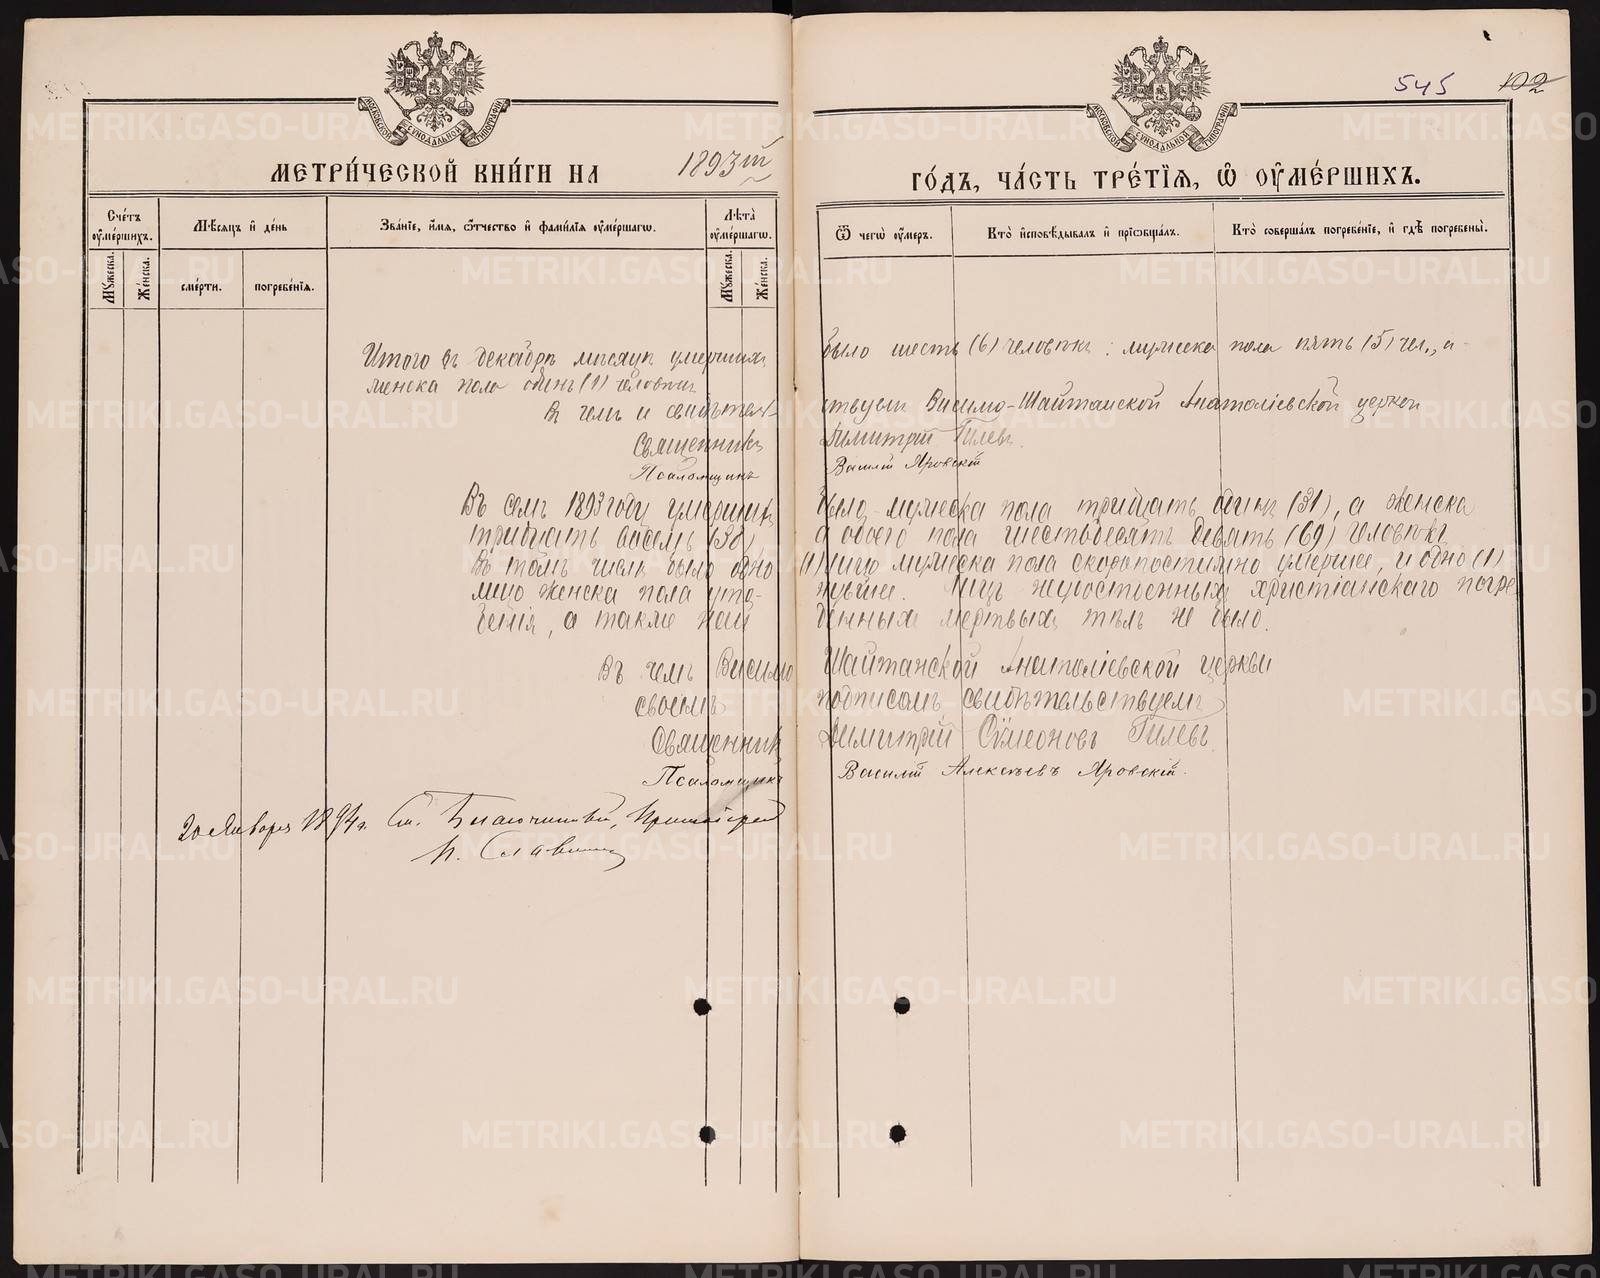 545 102
МОСКОВСКОЙ СѴНОДАЛЬНОЙ ТИПОГРАФІИ
МОСКОВСКОЙ СѴНОДАЛЬНОЙ ТИПОГРАФІИ
МЕТРИ́ЧЕСКОЙ КНИ́ГИ НА 1893й
ГО́ДЪ, ЧА́СТЬ ТРЕ́ТІѦ, Ѽ ОУ҆МЕ́РШИХЪ.
Сче́тъ оу҆ме́ршихъ.
Мꙋ́жеска.
Же́нска.
Мѣ́сяцъ и҆ де́нь
сме́рти.
погребе́нїѧ.
Зва́нїе, и҆́мѧ, ѻ҆́тчество и҆ фами́лїѧ оу҆ме́ршагѡ.
Лѣ́та оу҆ме́ршагѡ.
Мꙋ́жеска.
Же́нска.
Ѿ чегѡ̀ оу҆́меръ.
Кто̀ и҆сповѣ́дывалъ и҆ прїѡбща́лъ.
Кто̀ соверша́лъ погребе́нїе, и҆ гдѣ̀ погребены̀.
Итого въ декабрѣ мѣсяцѣ умершихъ было шесть (6) человѣкъ: мужеска пола пять (5) чел., а
женска пола одинъ (1) человѣкъ
В чемъ и свидѣтельствуемъ Висимо-Шайтанской Анатоліевской церкви
Священникъ Димитрій Гилевъ.
Псаломщикъ Василій Яровскій
Въ семъ 1893 году умершихъ было мужеска пола тридцать одинъ (31), а женска
тридцать восемь (38) а обоего пола шестьдесятъ девять (69) человѣкъ
Въ томъ числѣ было одно (1) лицо мужеска пола скоропостижно умершее, и одно (1)
лицо женска пола уто- нувшее. Лицъ неудостоенныхъ христіанскаго погре-
бенія, а также най денныхъ мертвыхъ тѣлъ не было.
Въ чемъ Висимо Шайтанской Анатоліевской церкви
своимъ подписомъ свидѣтельствуемъ
Священникъ Димитрій Сѵмеоновъ Гилевъ.
Псаломщикъ Василій Алексѣевъ Яровскій.
20 Января 1894 г. См. Благочинный, Протоіерей
METRIKI.GASO-URAL.RU